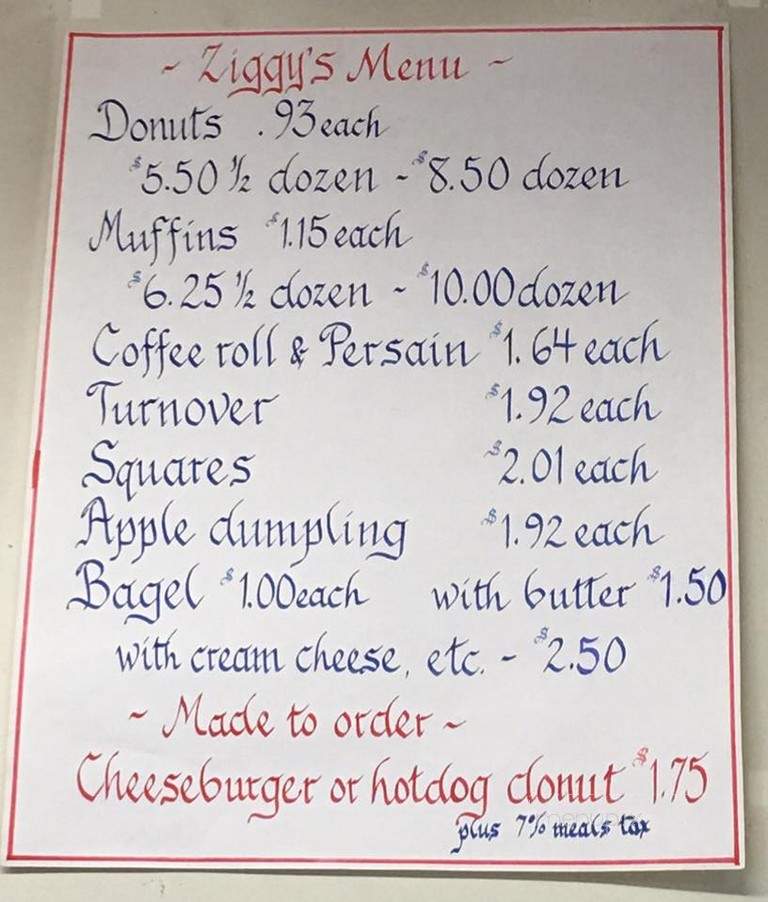 ~ Ziggy's Menu ~
Donuts .93 each
$5.50 ½ dozen - $8.50 dozen
Muffins $1.15 each
$6.25 ½ dozen - $10.00 dozen
Coffee roll & Persain $1.64 each
Turnover $1.92 each
Squares $2.01 each
Apple dumpling $1.92 each
Bagel $1.00 each with butter $1.50
with cream cheese, etc. - $2.50
~ Made to order ~
Cheeseburger or hotdog donut $1.75
plus 7% meals tax